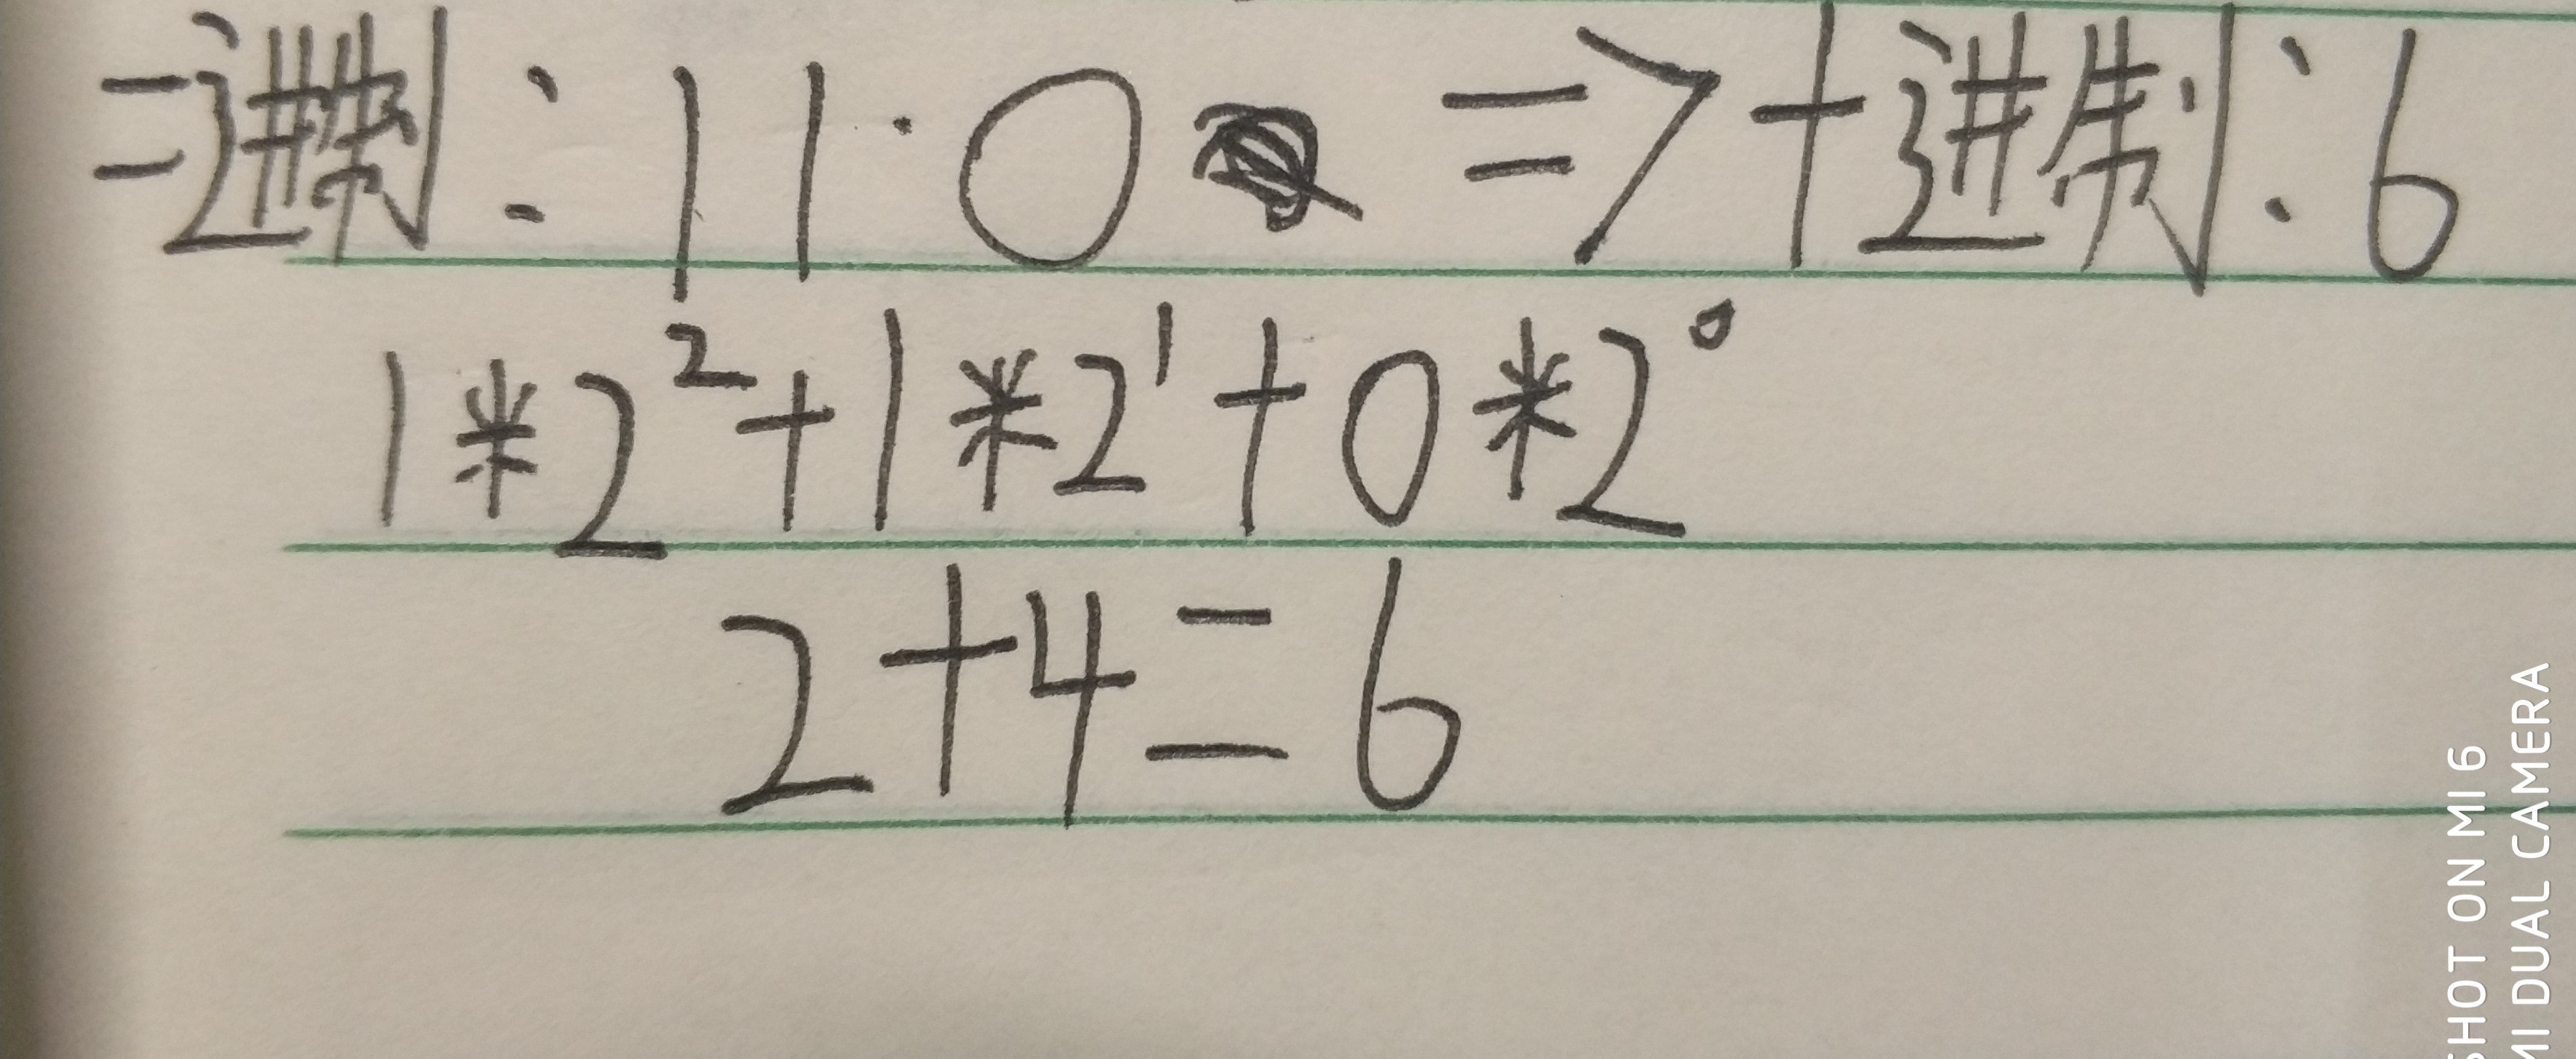 二进制：11·0 => 十进制：6
1*2²+1*2¹+0*2⁰
2+4=6
SHOT ON MI 6
MI DUAL CAMERA